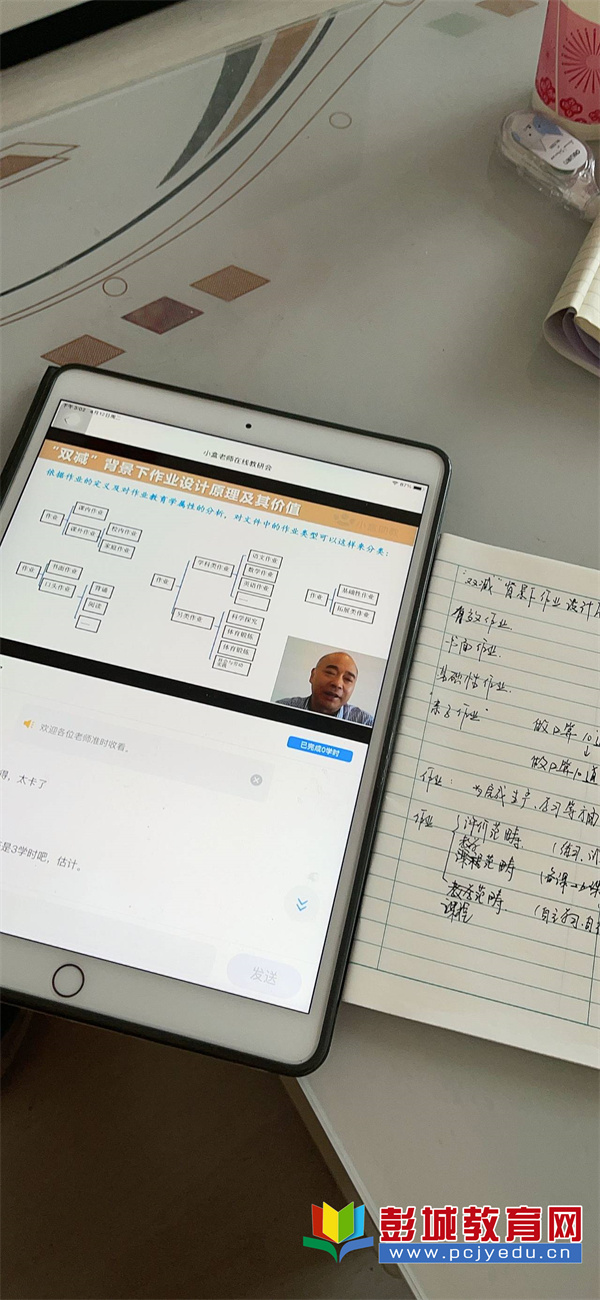 下午3:02 4月12日周二
87%
小盒老师在线教研会
“双减”背景下作业设计原理及其价值
依据作业的定义及对作业教育学属性的分析，对文件中的作业类型可以这样来分类：
作业
课内作业
课外作业
校内作业
家庭作业
作业
书面作业
口头作业
背诵
阅读
……
作业
学科类作业
语文作业
数学作业
英语作业
……
另类作业
科学探究
体育锻炼
体育锻炼
作业
基础性作业
拓展类作业
欢迎各位老师准时收看。
已完成0学时
得，太卡了
是3学时吧，估计。
发送
“双减”背景下作业设计
有效作业
书面作业
基础性作业
亲子作业
做口算10道
做口算10道
作业：
作业
评价范畴
课程范畴
教学范畴
课程
deli
彭城教育网
www.pcjyedu.cn